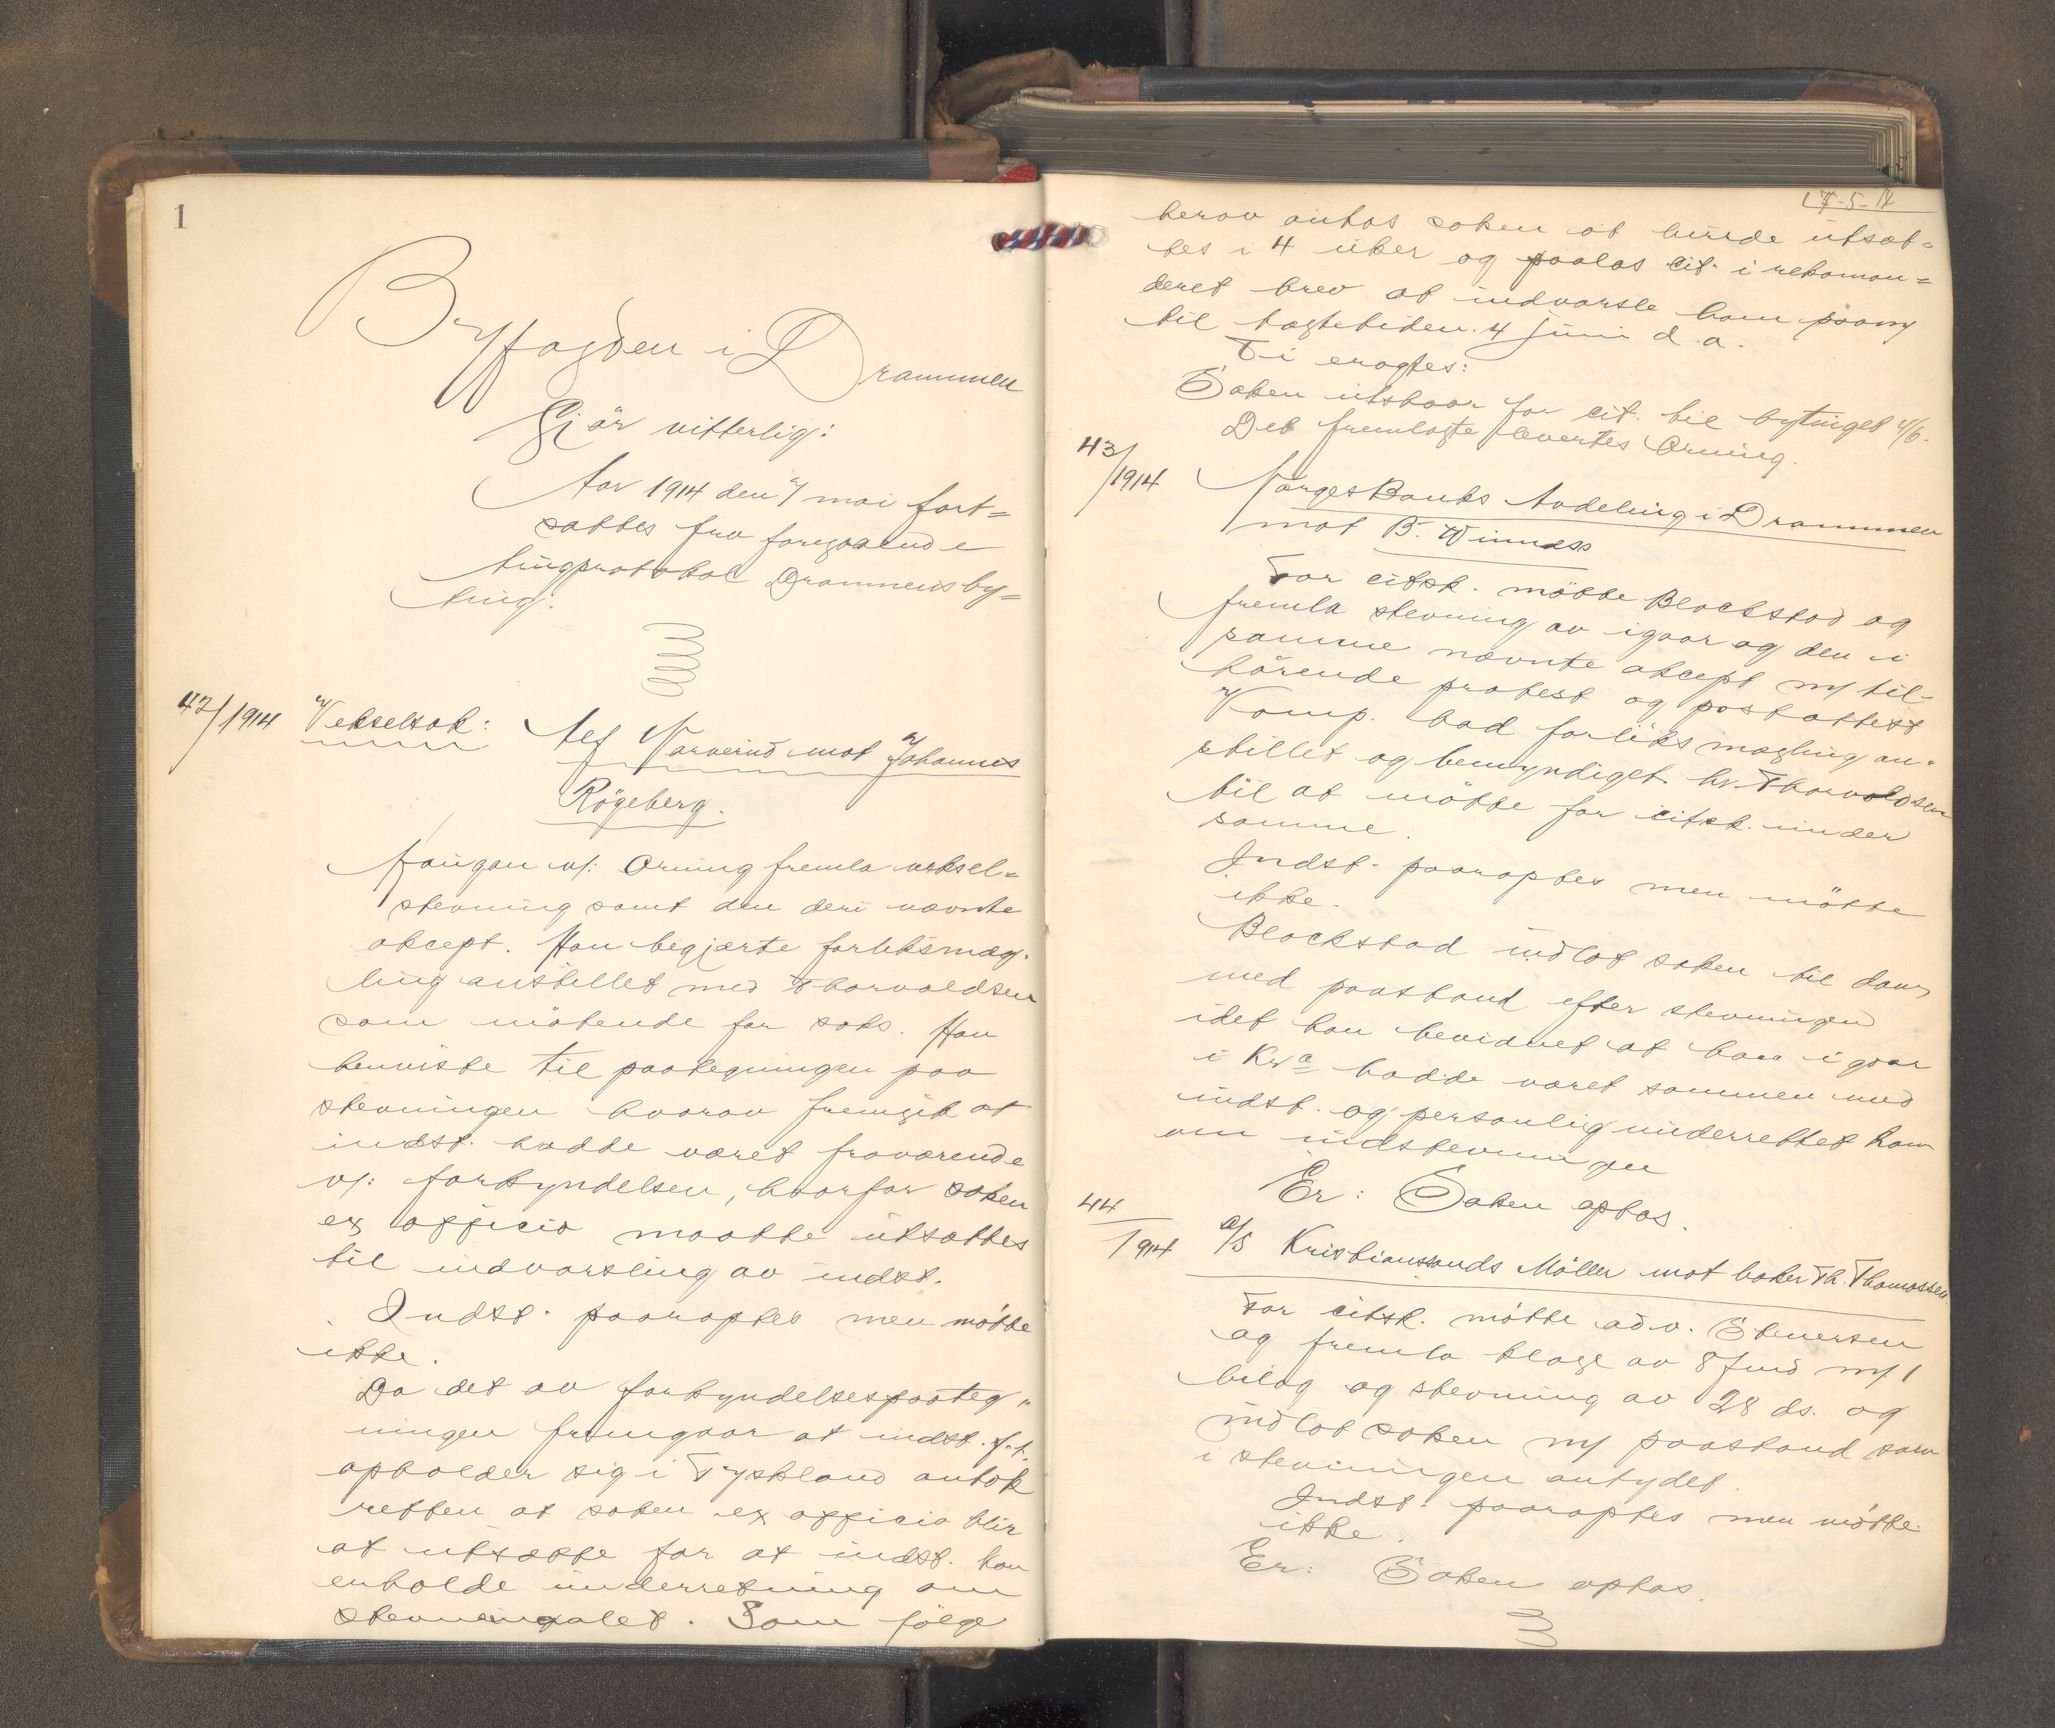 1
Byfogden i Drammen
Gjör vitterlig:
Aar 1914 den 7/ mai fort=
sattes fra foregaaende
tingprotokol Drammens by=
ting.
42/1914 Vekselsak: Alf Narverud mot Johannes
Rögeberg.
Haugan v/: Orning fremla veksel=
stevning samt den deri nævnte
aksept. Han begjærte forliksmæg-
ling anstillet med Thorvaldsen
som mötende for saks. Han
henviste til paategningen paa
stevningen hvorav fremgik at
indst. hadde været fraværende
v/: forkyndelsen, hvorfor saken
ex officio maatte utsættes
til indvarsling av indst.
Indst. paaroptes men mötte
ikke.
Da det av forkyndelsespaateg"
ningen fremgaar at indst. f.t.
opholder sig i Tyskland antok
retten at saken ex officio blir
at utsætte for at indst. kan
erholde underretning om
stevnemaalet. Som fölge
7-5-14
herav antas saken at burde utsæt=
tes i 4 uker og paalas cit. i rekoman=
deret brev at indvarsle ham paany
til tægtetiden 4 juni d.a.
Ti eragtes:
Saken utstaar for cit. til bytinget 4/6.
Det fremlagte levertes Orning.
43/1914 Norges Banks Avdeling i Drammen
mot B. Winness
For citsk. mötte Blackstad og
fremla stevning av igaar og den i
samme nævnte aksept m/ til-
hörende protest og postattest
Komp. bad forliksmægling an-
stillet og bemyndiget hr. Thorvaldsen
til at mötte for citsk. under
samme.
Indst. paaroptes men mötte
ikke.
Blackstad indlot saken til dom
med paastand efter stevningen
idet han bevidnet at han igaar
i Kra hadde været sammen med
indst. og personlig underrettet ham
om indstevningen
Er: Saken optas.
44/1914 A/S Kristianssands Möller mot baker Th. Thomassen
For citsk. mötte adv. Stenersen
og fremla klage av 8 m/ 1
bilag og stevning av 28 ds. og
indlot saken m/ paastand som
i stevningen antydet.
Indst. paaroptes men mötte
ikke.
Er: Saken optas.